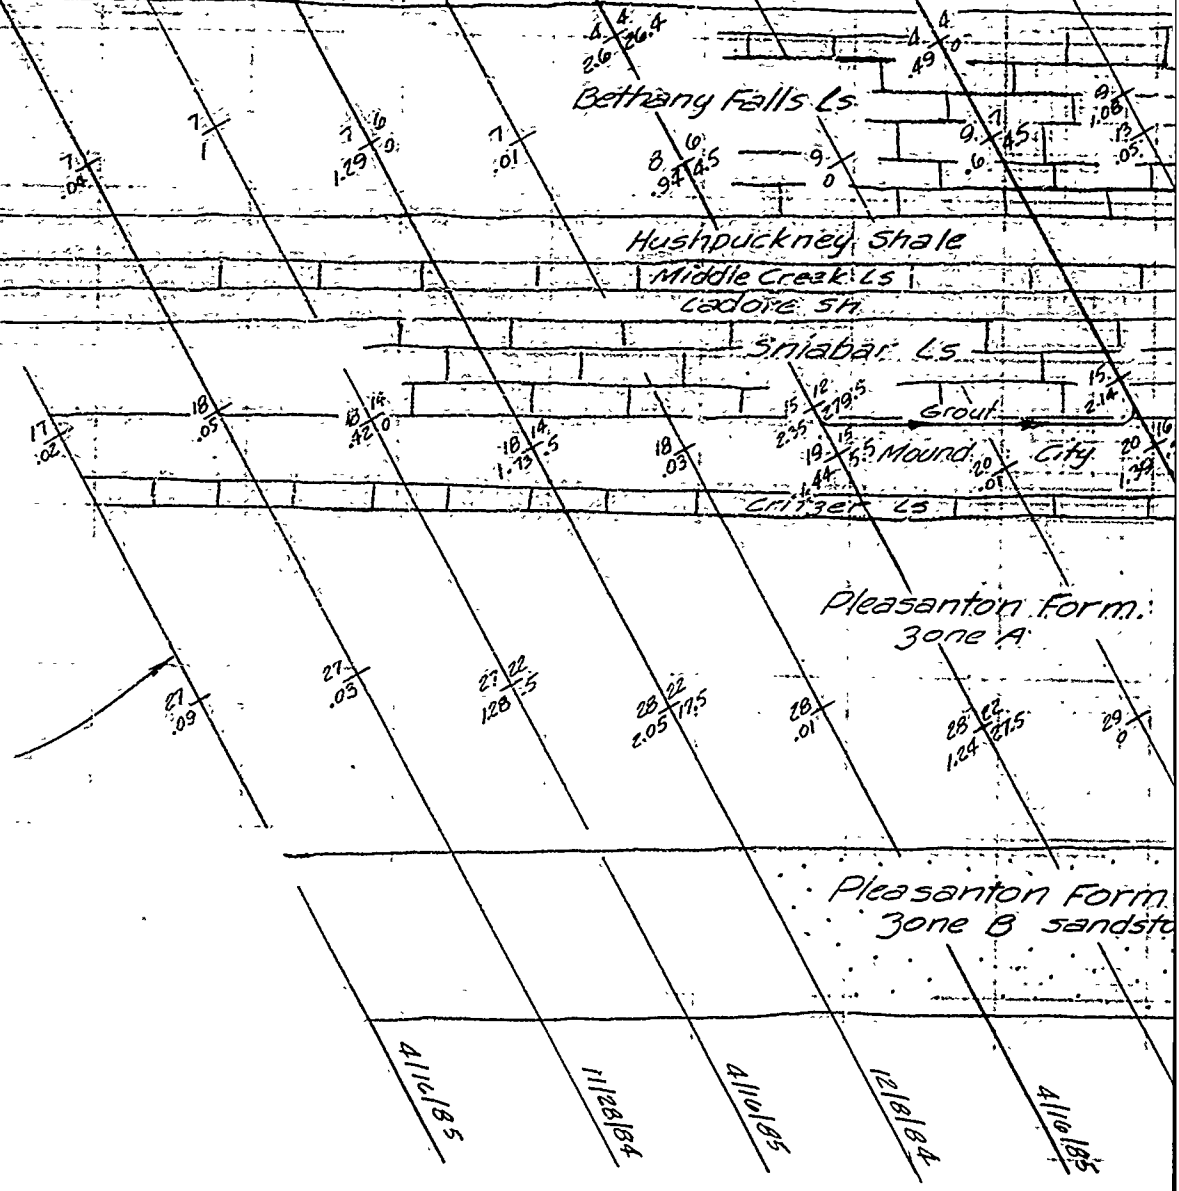 4 4
2.6 26.4
4 4
.49 0
Bethany Falls Ls
9
1.08
7
1
7 6
1.29 0
7
.01
7
.04
8 6
.97 4.5
9
0
9 7
.6 4.5
13
.05
Hushpuckney Shale
Middle Creek Ls
Ladore Sh
Sniabar Ls
15
2.14
18
.05
18 14
.42 0
15 12
2.35 279.5
Grout
17
.02
18 14
1.73 .5
18
.03
19 15
1.44 5.5
Mound City
20
.01
20 16
1.39
Critzer Ls
Pleasanton Form.
Zone A
27
.09
27
.03
27 22
1.28 .5
28 22
2.05 17.5
28
.01
28 22
1.24 27.5
29
0
Pleasanton Form
Zone B sandsto
4/16/85
11/28/84
4/16/85
12/8/84
4/16/85